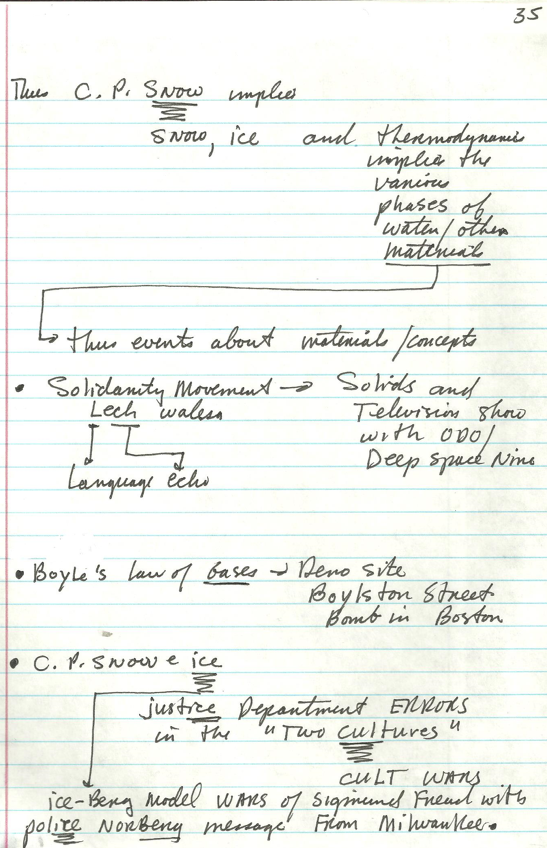 35
Thus C. P. SNOW implies
SNOW, ice and thermodynamics
implies the
various
phases of
water/other
materials
thus events about materials/concepts
• Solidarity Movement → Solids and
Lech walesa Television Show
with ODO/
Deep Space Nine
Language echo
• Boyle's law of gases →
Boylston Street
Bomb in Boston
• C. P. SNOW e ice
justice Department ERRORS
in the "Two Cultures"
CULT WARS
ice-Berg Model WARS of Sigmund Freud with
police NorBerg message From Milwaukee.